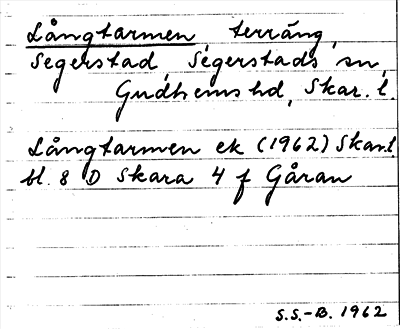 Långtarmen terräng,
Segerstad Segerstads sn,
Gudhems hd, Skar. l.
Långtarmen ek (1962) Skar.l.
bl. 8 D Skara 4 f Gåran
S.S.-B. 1962